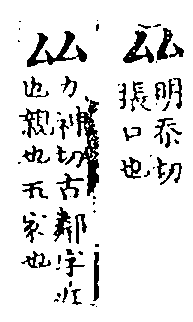 厸
明忝切
張口也
厸
力神切古鄰字近
也親也五家也